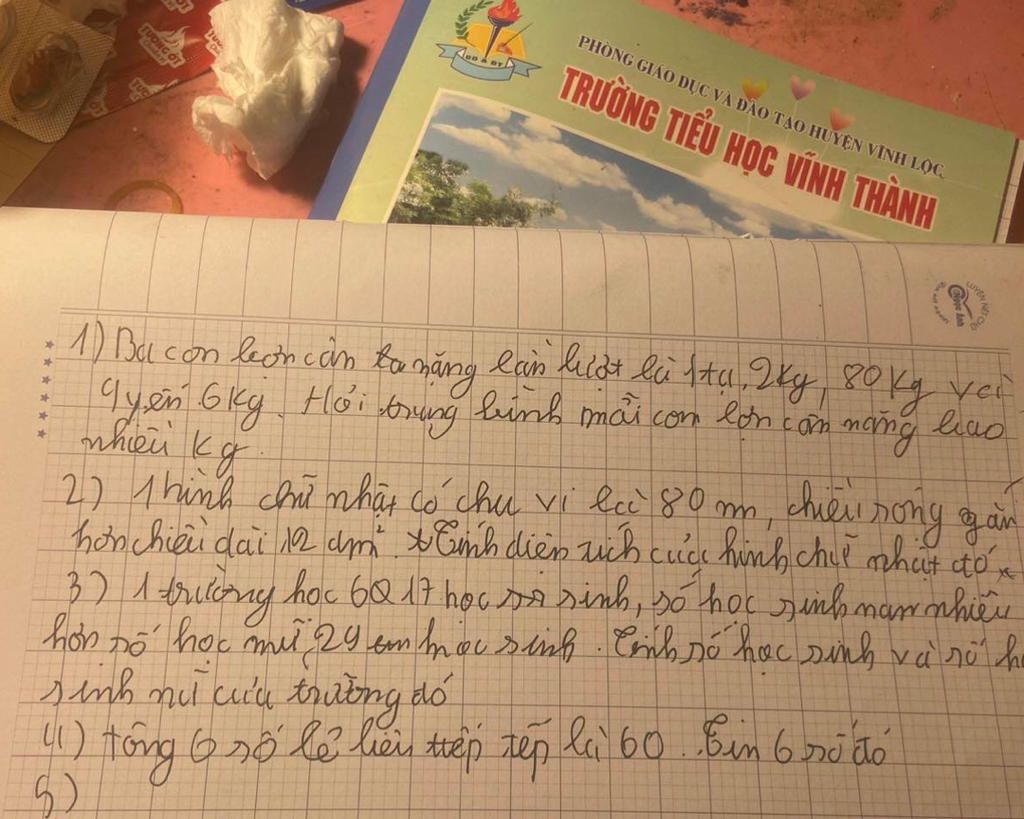 TƯƠNG ỚT
BD & ĐT
PHÒNG GIÁO DỤC VÀ ĐÀO TẠO HUYỆN VĨNH LỘC
TRƯỜNG TIỂU HỌC VĨNH THÀNH
LUYỆN NÉT CHỮ
Ngọc Ánh
1) Ba con lơn cân nặng lần lượt là 1tạ, 2kg, 80kg và
9yến 6kg. Hỏi trung bình mỗi con lợn cân nặng bao
nhiêu kg.
2) 1hình chữ nhật có chu vi là 80 m, chiều rông gắn
hơn chiều dài 12 dm². Tính diện tích của hình chữ nhật đó
3) 1 trường học 6017 học sinh, số học sinh nam nhiều
hơn số học nữ 29 em học sinh. Tính số học sinh và số h
sinh nữ của trường đó
4) tổng 6 số lẻ liên tiếp là 60. Tìm 6 số đó
5)